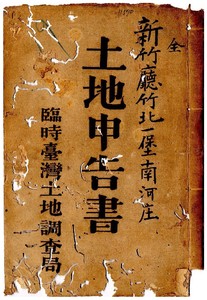 全
新竹廳竹北一堡南河庄
土地申告書
臨時臺灣土地調查局